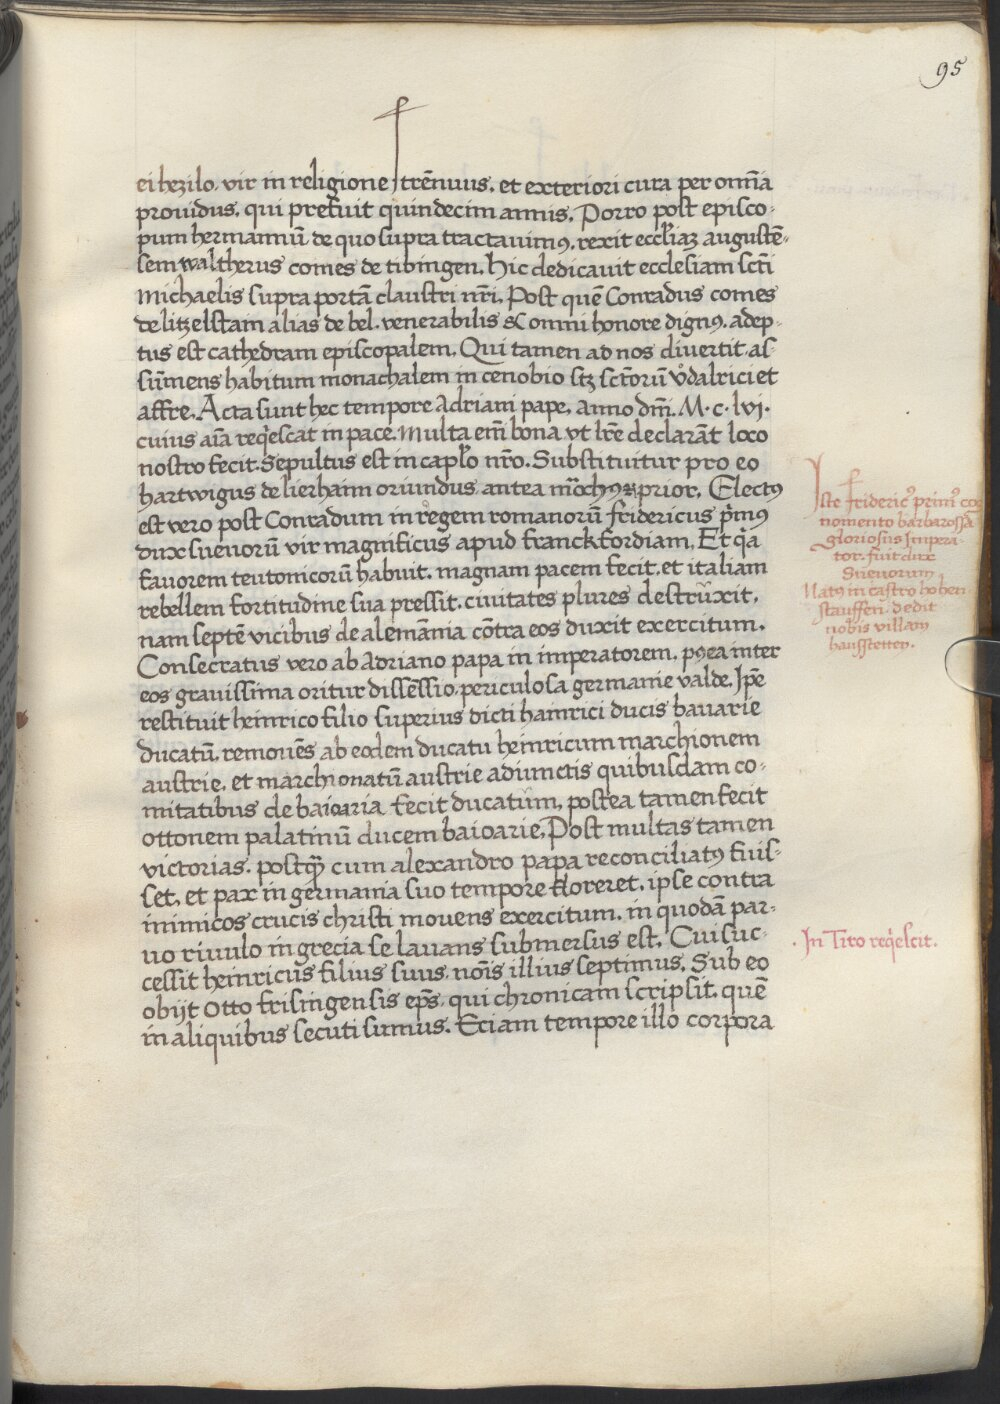 95
ei hezilo. vir in religione strēnuus. et exteriori cura per om̄ia
prouidus. qui prefuit quindecim annis. Porro post episco-
pum hermannū de quo supra tractauimꝰ. rexit eccl̄iaꝫ augustē-
sem waltherus comes de tibingen. Hic dedicauit ecclesiam scti̅
michaelis supra portā claustri nr̄i. Post quē Conradus comes
de litzelstain alias de bel. venerabilis & omni honore dignꝰ. adep-
tus est cathedram episcopalem. Qui tamen ad nos diuertit as-
sūmens habitum monachalem in cenobio sꝫ sctōrū vͦdalrici et
affre. Acta sunt hec tempore Adriani pape. anno dm̄i. M.c.lvi.
cuius aīa reqͥescat in pace. Multa em̄ bona vt lr̄e declarāt loco
nostro fecit. Sepultus est in capl̄o nr̄o. Substituitur pro eo
hartwigus de lierhaim oriundus antea mōchꝰ ⁊ prior. Electꝰ
est vero post Conradum in regem romanorū fridericus pͥmꝰ
dux sueuorū vir magnificus apud franckfordiam. Et qͥa
fauorem teutonicorū habuit. magnam pacem fecit. et italiam
rebellem fortitudine sua pressit. ciuitates plures destrūxit.
nam septē vicibus de alemānia cōntra eos duxit exercitum.
Consecratus vero ab Adriano papa in imperatorem. pꝰea inter
eos grauissima oritur dissēssio. periculosa germanie valde. Ip̄e
restituit heinrico filio superius dicti hainrici ducis bauarie
ducatū. remouēs ab eodem ducatu heinricum marchionem
austrie. et marchionatū austrie adiunctis quibusdam co-
mitatibus de baioaria fecit ducatūm. postea tamen fecit
ottonem palatinū ducem baioarie. Post multas tamen
victorias. postqꝫ cum alexandro papa reconciliatꝰ fuis-
set. et pax in germania suo tempore floreret. ipse contra
inimicos crucis christi mouens exercitum. in quodā par-
uo riuulo in grecia se lauans submersus est. Cui suc-
cessit heinricus filius suus. nōis illius septimus. Sub eo
obijt Otto frisingensis ep̄s. qui chronicam scripsit. quē
in aliquibus secuti sumus. Eciam tempore illo corpora
Iste fridericꝰ primꝰ cog
nomento barbarossa
gloriosus Impera-
tor. fuit dux
Sueuorum
Natꝰ in castro hohen
stauffen. dedit
nobis villam
hausstetten.
. In Tiro reqͥescit.